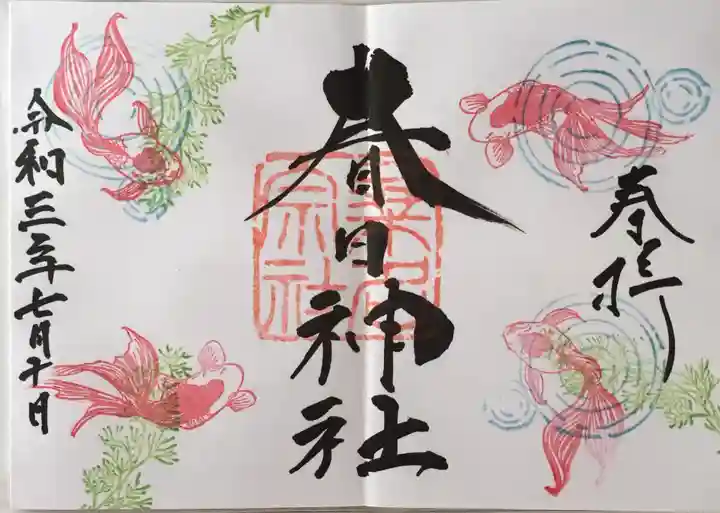 奉拝
春日神社
桑名
宗社
令和三年七月十日